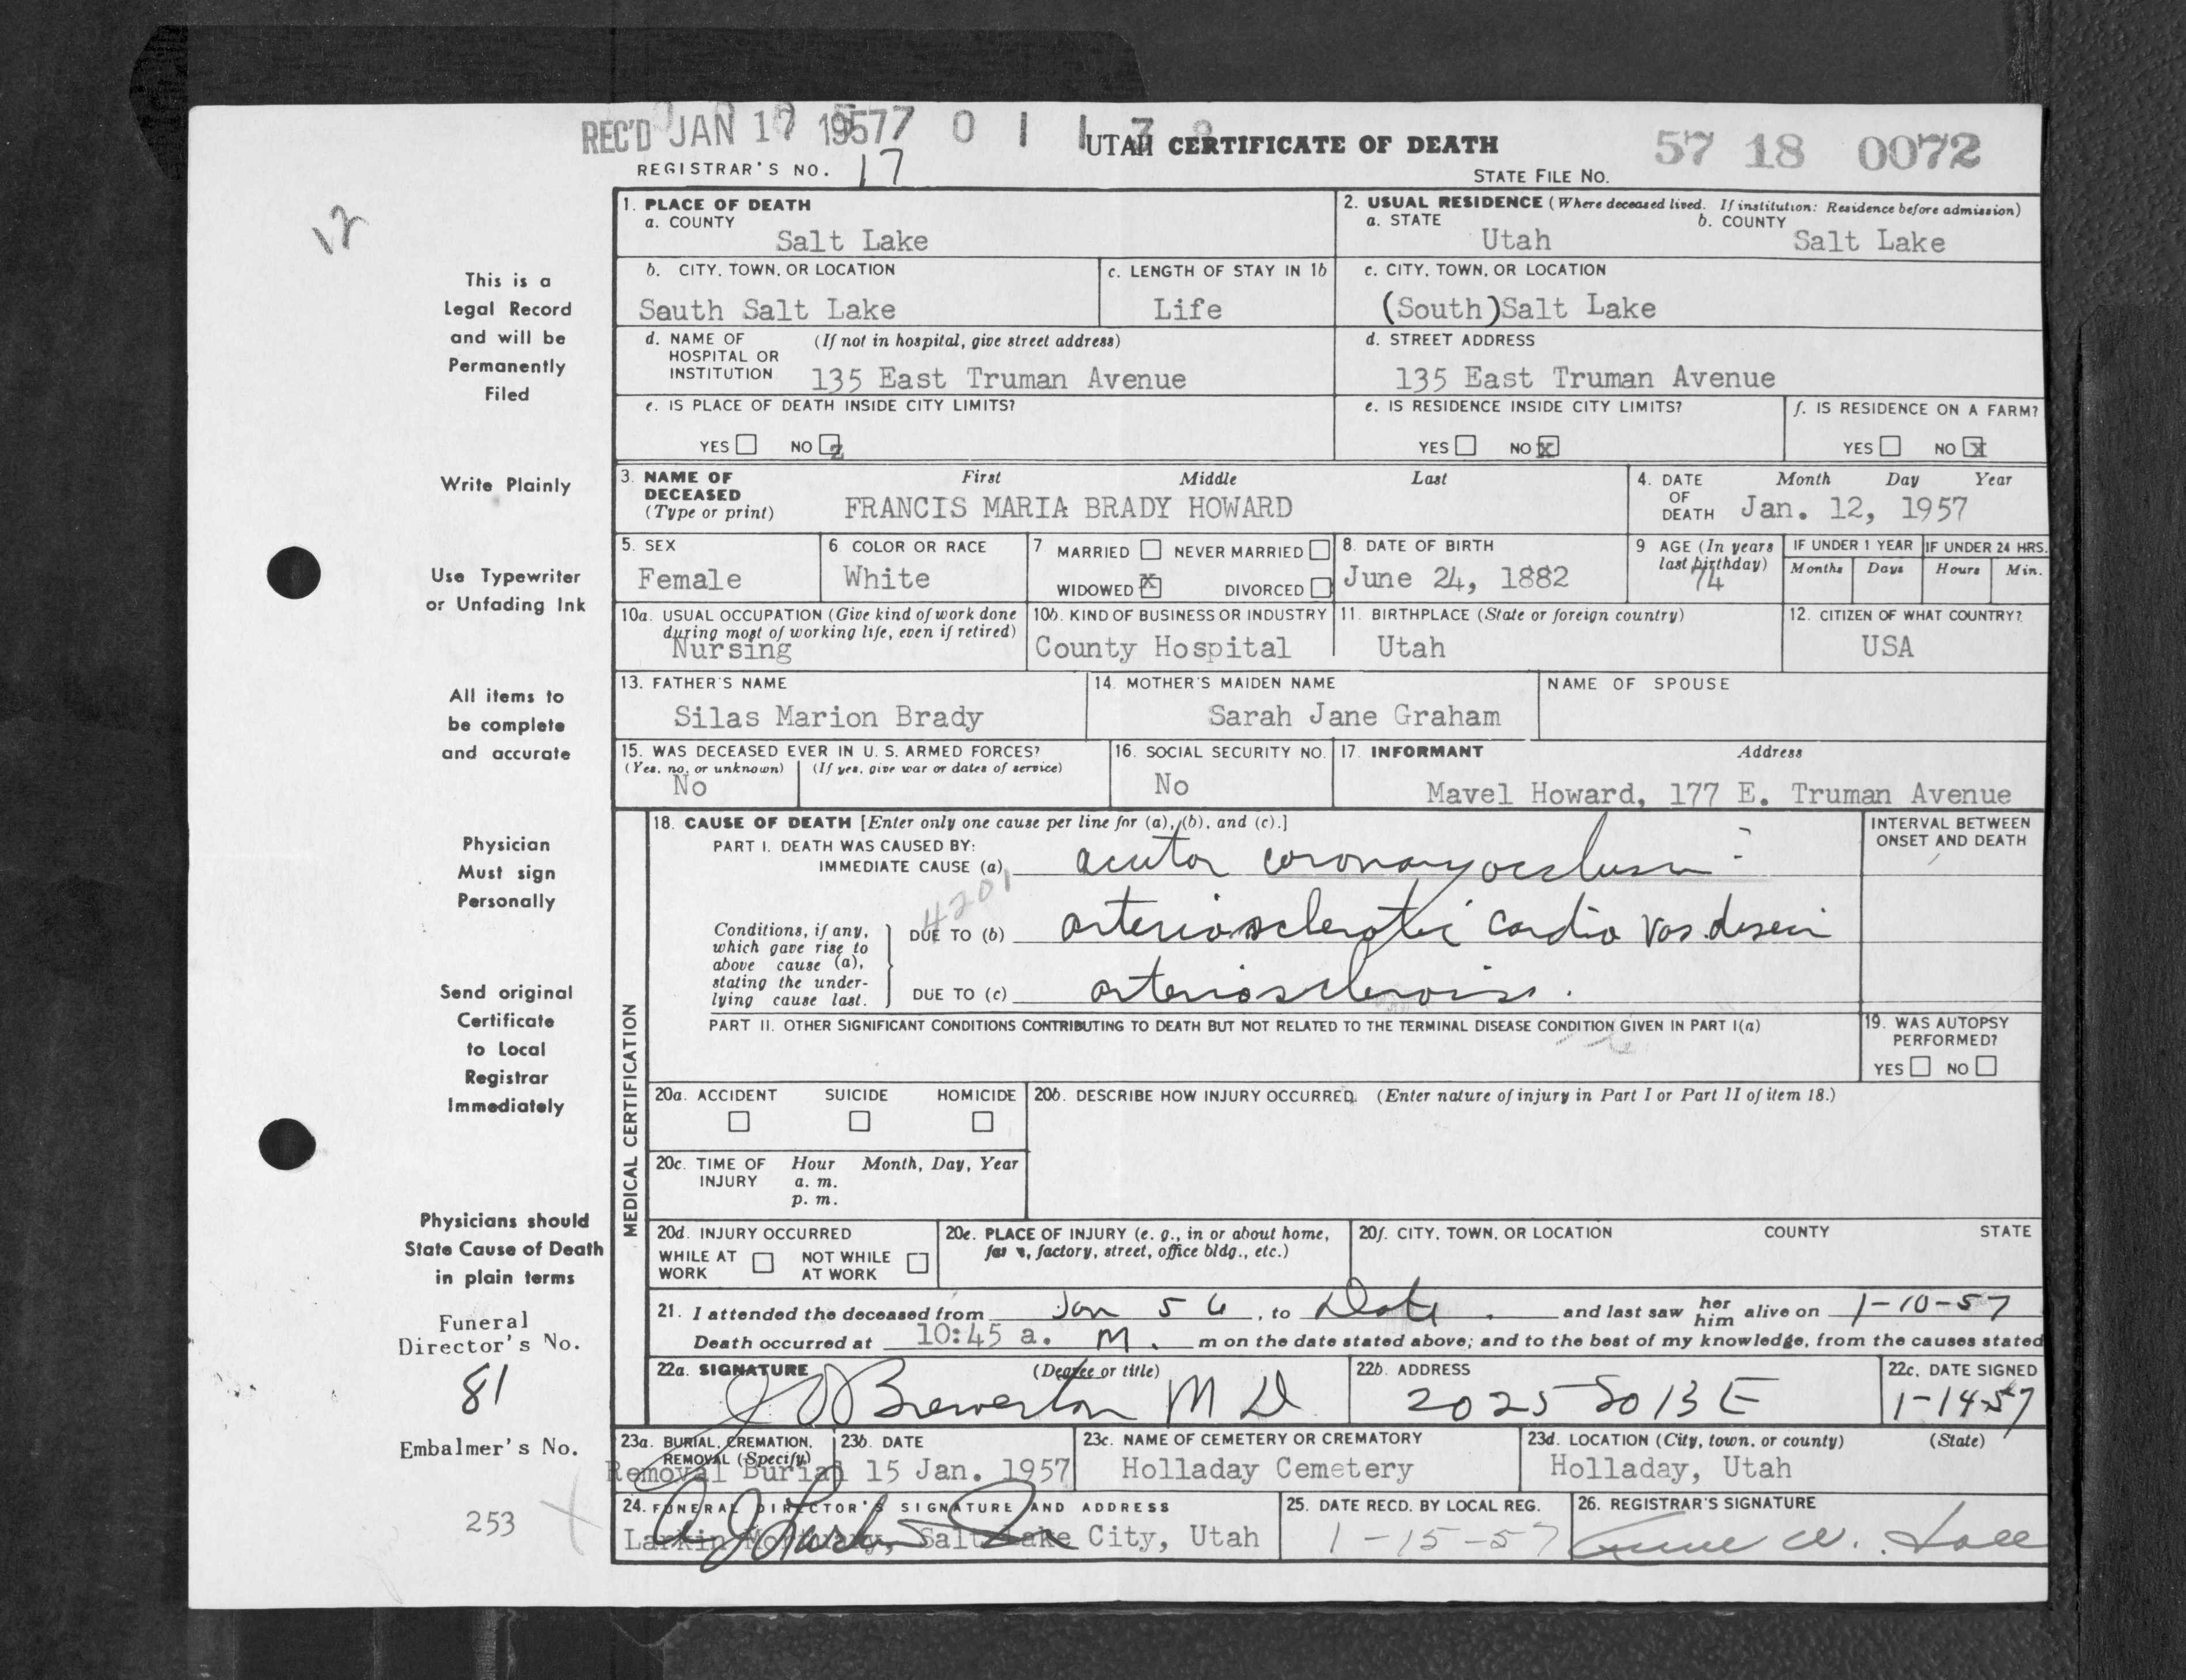 REC'D JAN 17 1957
UTAH CERTIFICATE OF DEATH
57 18 0072
REGISTRAR'S NO. 17
STATE FILE NO.
12
This is a
Legal Record
and will be
Permanently
Filed
Write Plainly
Use Typewriter
or Unfading Ink
All items to
be complete
and accurate
Physician
Must sign
Personally
Send original
Certificate
to Local
Registrar
Immediately
Physicians should
State Cause of Death
in plain terms
Funeral
Director's No.
81
Embalmer's No.
253
1. PLACE OF DEATH
a. COUNTY
Salt Lake
2. USUAL RESIDENCE (Where deceased lived. If institution: Residence before admission)
a. STATE b. COUNTY
Utah Salt Lake
b. CITY, TOWN, OR LOCATION
Sauth Salt Lake
c. LENGTH OF STAY IN 1b
Life
c. CITY, TOWN, OR LOCATION
(South)Salt Lake
d. NAME OF (If not in hospital, give street address)
HOSPITAL OR
INSTITUTION 135 East Truman Avenue
d. STREET ADDRESS
135 East Truman Avenue
e. IS PLACE OF DEATH INSIDE CITY LIMITS?
YES NO Z
e. IS RESIDENCE INSIDE CITY LIMITS?
YES NO X
f. IS RESIDENCE ON A FARM?
YES NO X
3. NAME OF First Middle Last
DECEASED
(Type or print) FRANCIS MARIA BRADY HOWARD
4. DATE Month Day Year
OF
DEATH Jan. 12, 1957
5. SEX
Female
6 COLOR OR RACE
White
7 MARRIED NEVER MARRIED
WIDOWED X DIVORCED
8. DATE OF BIRTH
June 24, 1882
9 AGE (In years
last birthday)
74
IF UNDER 1 YEAR IF UNDER 24 HRS.
Months Days Hours Min.
10a. USUAL OCCUPATION (Give kind of work done
during most of working life, even if retired)
Nursing
10b. KIND OF BUSINESS OR INDUSTRY
County Hospital
11. BIRTHPLACE (State or foreign country)
Utah
12. CITIZEN OF WHAT COUNTRY?
USA
13. FATHER'S NAME
Silas Marion Brady
14. MOTHER'S MAIDEN NAME
Sarah Jane Graham
NAME OF SPOUSE
15. WAS DECEASED EVER IN U. S. ARMED FORCES?
(Yes, no, or unknown) (If yes, give war or dates of service)
No
16. SOCIAL SECURITY NO.
No
17. INFORMANT Address
Mavel Howard, 177 E. Truman Avenue
MEDICAL CERTIFICATION
18. CAUSE OF DEATH [Enter only one cause per line for (a), (b), and (c).]
INTERVAL BETWEEN
ONSET AND DEATH
PART I. DEATH WAS CAUSED BY:
IMMEDIATE CAUSE (a) acute coronary occlusion
4201
Conditions, if any,
which gave rise to
above cause (a),
stating the under-
lying cause last.
DUE TO (b) arteriosclerotic cardio vas. disease
DUE TO (c) arteriosclerosis.
PART II. OTHER SIGNIFICANT CONDITIONS CONTRIBUTING TO DEATH BUT NOT RELATED TO THE TERMINAL DISEASE CONDITION GIVEN IN PART I(a)
19. WAS AUTOPSY
PERFORMED?
YES NO
20a. ACCIDENT SUICIDE HOMICIDE
20b. DESCRIBE HOW INJURY OCCURRED. (Enter nature of injury in Part I or Part II of item 18.)
20c. TIME OF Hour Month, Day, Year
INJURY a. m.
p. m.
20d. INJURY OCCURRED
WHILE AT NOT WHILE
WORK AT WORK
20e. PLACE OF INJURY (e. g., in or about home,
farm, factory, street, office bldg., etc.)
20f. CITY, TOWN, OR LOCATION COUNTY STATE
21. I attended the deceased from Jan 56, to Date. and last saw her him alive on 1-10-57
Death occurred at 10:45 a. M. m on the date stated above; and to the best of my knowledge, from the causes stated
22a. SIGNATURE (Degree or title)
Brewerton M D
22b. ADDRESS
2025 So 13 E
22c. DATE SIGNED
1-14-57
23a. BURIAL, CREMATION,
REMOVAL (Specify)
Removal Burial
23b. DATE
15 Jan. 1957
23c. NAME OF CEMETERY OR CREMATORY
Holladay Cemetery
23d. LOCATION (City, town, or county) (State)
Holladay, Utah
24. FUNERAL DIRECTOR'S SIGNATURE AND ADDRESS
Larkin Mortuary, Salt Lake City, Utah
25. DATE RECD. BY LOCAL REG.
1-15-57
26. REGISTRAR'S SIGNATURE